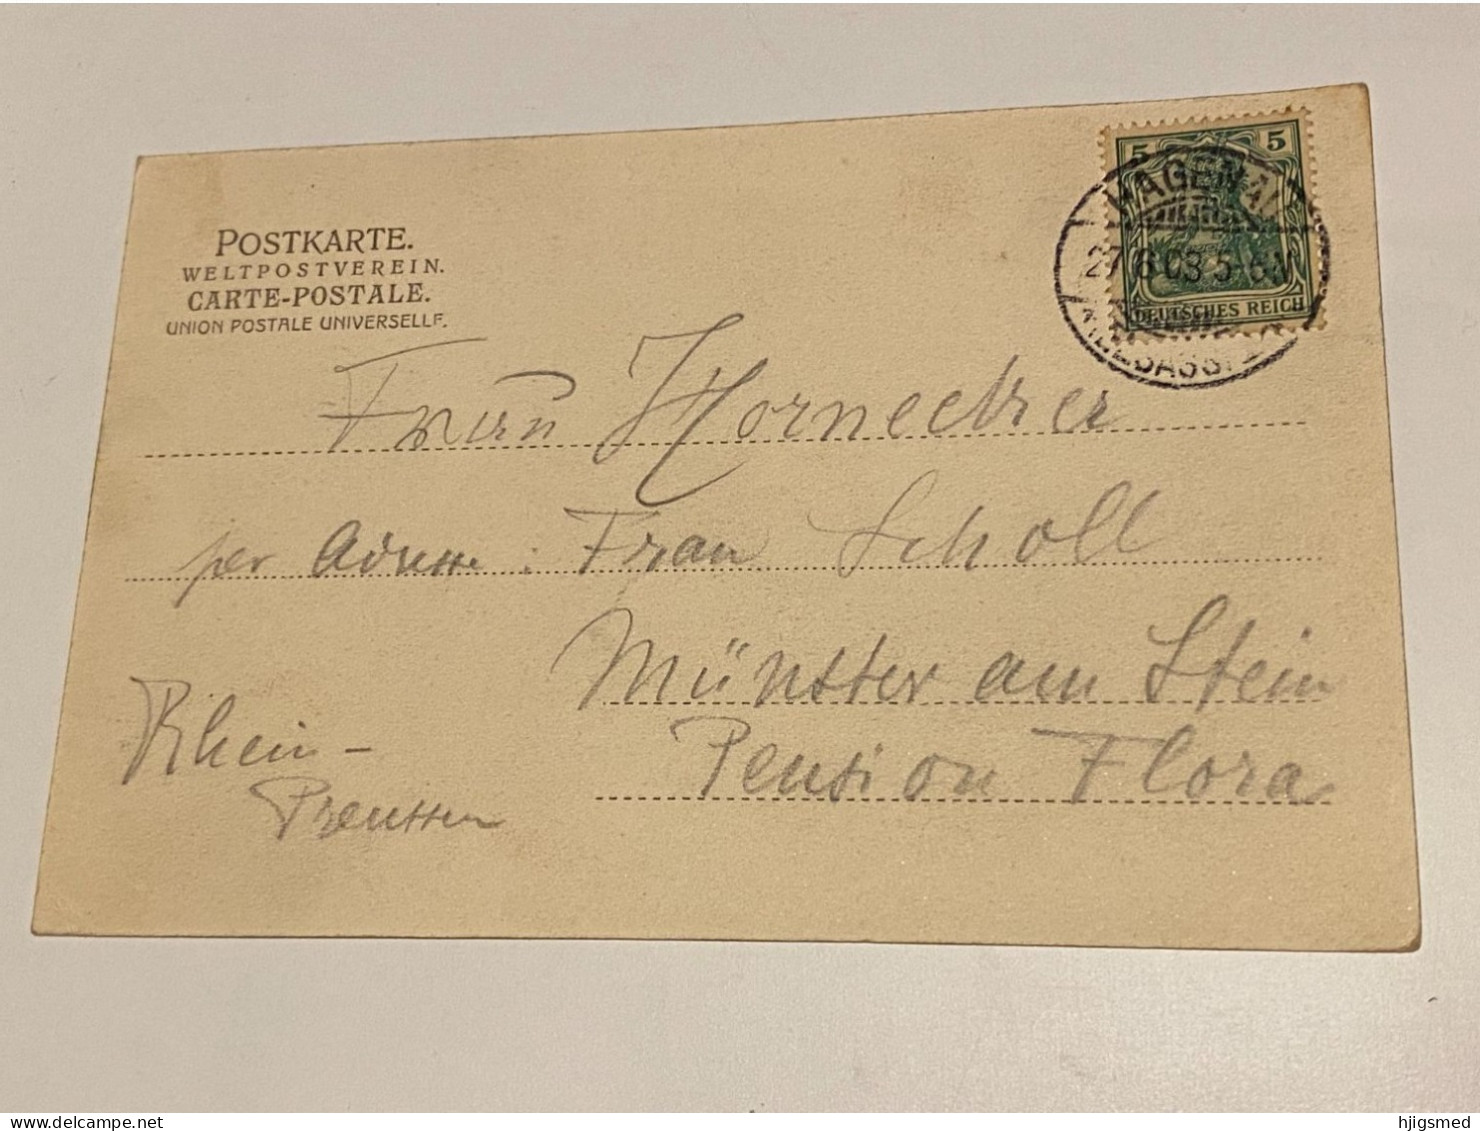 POSTKARTE.
WELTPOSTVEREIN.
CARTE-POSTALE.
UNION POSTALE UNIVERSELLE.
5 5
HAGENAU
27.6.03.5-6N
(ELSASS)
DEUTSCHES REICH
Frau Hornecker
per Adresse: Frau Scholl
Münster am Stein
Pension Flora
Rhein-
Preussen
hjigsmed